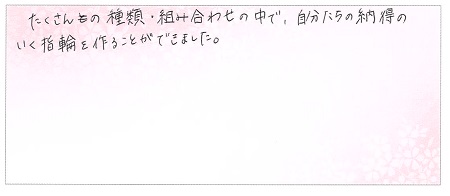 たくさんもの種類・組み合わせの中で、自分たちの納得の
いく指輪を作ることができました。